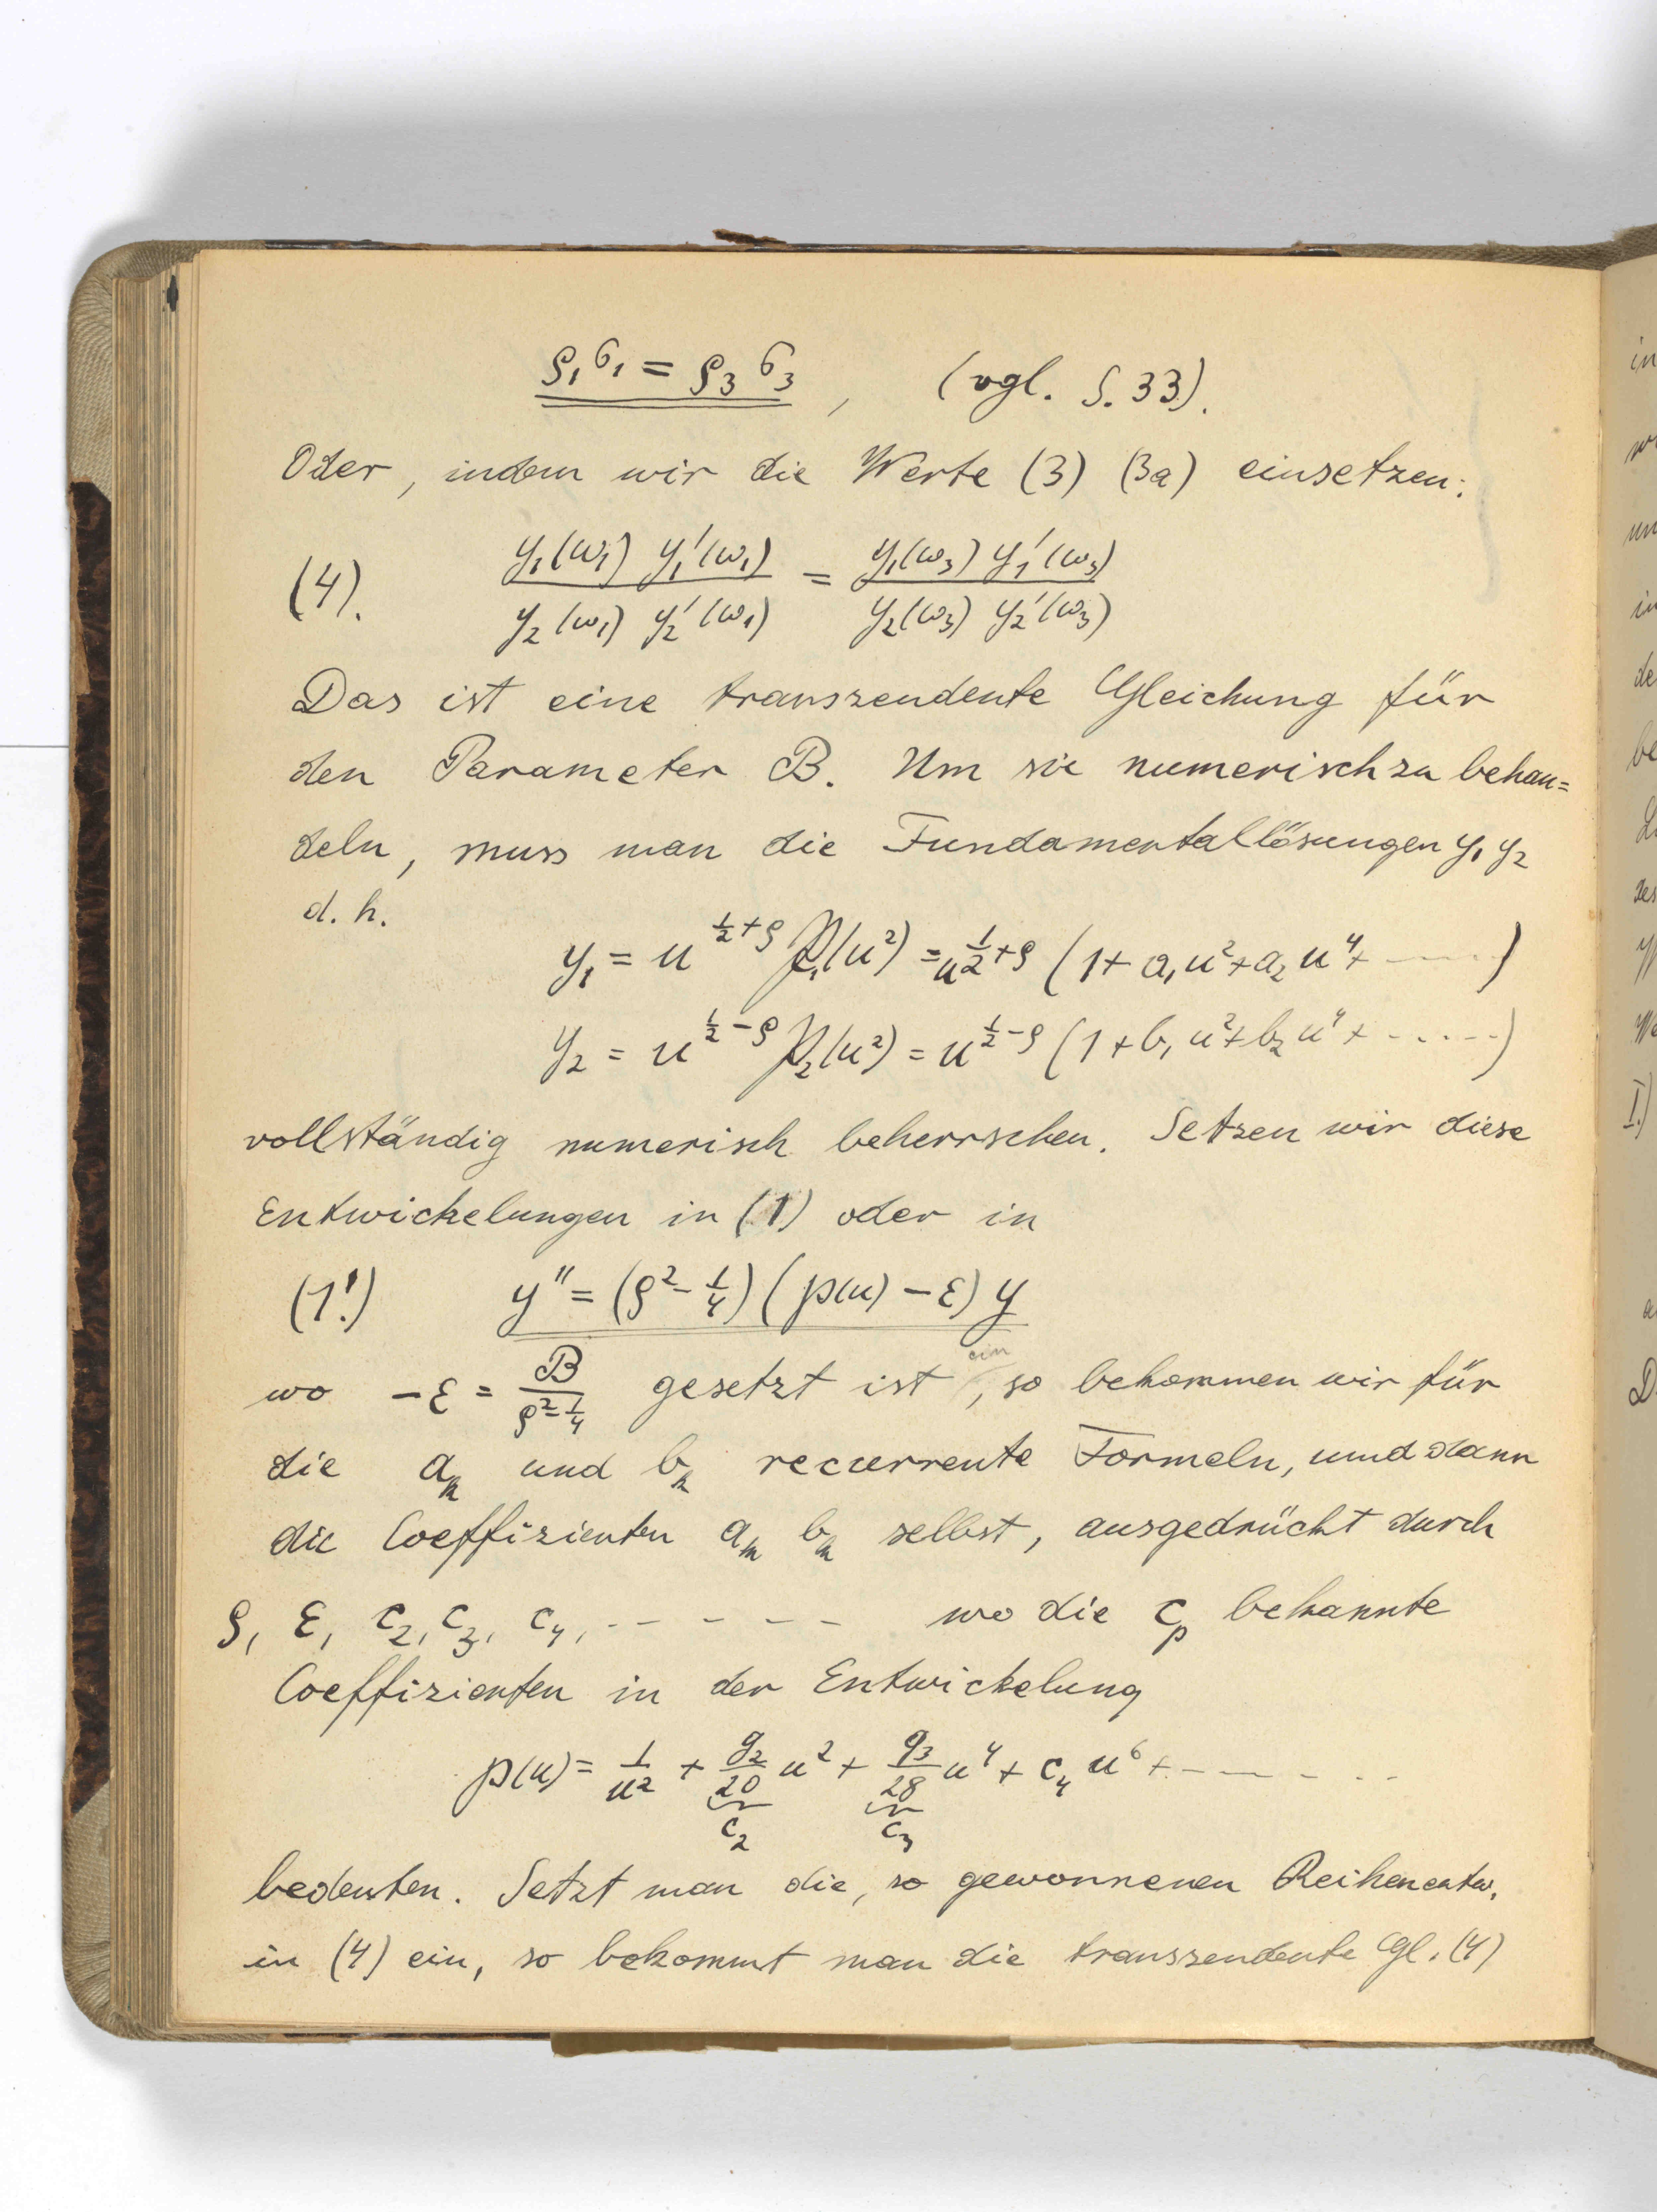 ρ₁σ₁ = ρ₃σ₃, (vgl. S. 33).
Oder, indem wir die Werte (3) (3a) einsetzen:
(4). y₁(ω₁) y₁'(ω₁) / y₂(ω₁) y₂'(ω₁) = y₁(ω₃) y₁'(ω₃) / y₂(ω₃) y₂'(ω₃)
Das ist eine transzendente Gleichung für
den Parameter B. Um sie numerisch zu behan=
deln, muss man die Fundamentallösungen y₁ y₂
d. h.
y₁ = u^(½+ρ) P₁(u²) = u^(½+ρ) (1 + a₁u² + a₂u⁴ + ----)
y₂ = u^(½-ρ) P₂(u²) = u^(½-ρ) (1 + b₁u² + b₂u⁴ + -----)
vollständig numerisch beherrschen. Setzen wir diese
Entwickelungen in (1) oder in
(1'.) y'' = (ρ² - ¼) (℘(u) - ε) y
ein
wo -ε = B / (ρ² - ¼) gesetzt ist, so bekommen wir für
die aₖ und bₖ recurrente Formeln, und dann
die Coeffizienten aₖ bₖ selbst, ausgedrückt durch
ρ, ε, c₂, c₃, c₄, ----- wo die cₚ bekannte
Coeffizienten in der Entwickelung
℘(u) = 1/u² + g₂/20 u² + g₃/28 u⁴ + c₄ u⁶ + ------
c₂ c₃
bedeuten. Setzt man die, so gewonnenen Reihenentw.
in (4) ein, so bekommt man die transzendente Gl. (4)